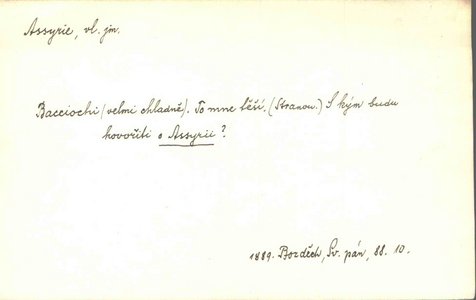 Assyrie, vl. jm.
Bacciochi (velmi chladně). To mne těší. (Stranou.) S kým budu
hovořiti o Assyrii?
1889. Bozděch, Sv. pán, 88. 10.